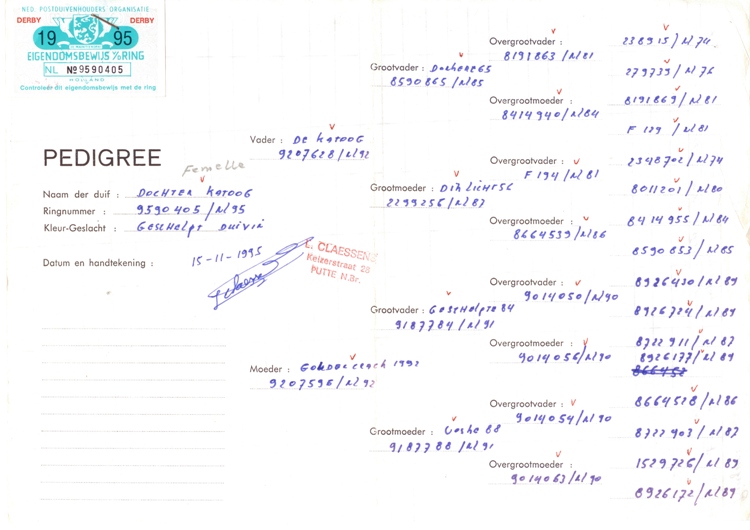 NED. POSTDUIVENHOUDERS ORGANISATIE
DERBY DERBY
19 95
EIGENDOMSBEWIJS V/D RING
NL Nº9590405
HOLLAND
Controleer dit eigendomsbewijs met de ring
PEDIGREE
Femelle
Naam der duif : DOCHTER KATOOG
Ringnummer : 9590405/NL95
Kleur-Geslacht : GESCHELPT DUIVIN
Datum en handtekening : 15-11-1995
L. CLAESSENS
Keizerstraat 28
PUTTE N.Br.
Vader : DE KATOOG
9207628/NL92
Moeder : 1992
9207596/NL92
Grootvader : 65
8590865/NL85
Grootmoeder :
2299256/NL87
Grootvader : GESCHELPTE 84
9187784/NL91
Grootmoeder : 88
9187788/NL91
Overgrootvader :
8191863/NL81
Overgrootmoeder :
8414940/NL84
Overgrootvader :
F 194/NL81
Overgrootmoeder :
8664539/NL86
Overgrootvader :
9014050/NL90
Overgrootmoeder :
9014056/NL90
Overgrootvader :
9014054/NL90
Overgrootmoeder :
9014063/NL90
238915/NL74
279739/NL76
8191869/NL81
F 129/NL81
2348702/NL74
8011201/NL80
8414955/NL84
8590853/NL85
8926430/NL89
8926724/NL89
8722911/NL87
8926177/NL89
8664528/NL86
8722903/NL87
1529726/NL89
8926172/NL89